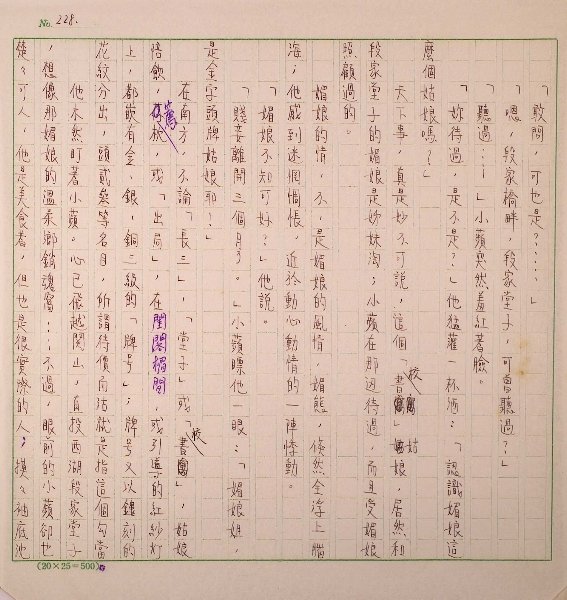 No. 228.
「敢問,可也是?……」
「嗯,段家橋畔,段家堂子,可曾聽過?」
「聽過……」小蘋忽然羞紅著臉。
「妳待過,是不是?」他猛灌一杯酒:「認識媚娘這
麼個姑娘嗎?」
天下事,真是妙不可說,這個「書校」姑娘,居然和
段家堂子的媚娘是姊妹淘;小蘋在那兒待過,而且受媚娘
照顧過的。
媚娘的情,不,是媚娘的風情,媚態,倏然全浮上腦
海;他感到迷惘惆悵,近於動心動情的一陣悸動。
「媚娘不知可好?」他說。
「賤妾離開三個月了。」小蘋瞟他一眼:「媚娘姐,
是金字頭牌姑娘耶!」
在南方,不論「長三」,「堂子」或「書校」,姑娘
陪飲,薦枕,或「出局」,在閨閣楣間,或列邊的紅紗灯
上,都嵌有金、銀,銅三級的「牌号」;牌号又以鏤刻的
花紋分出,頭貳叁等名目,所謂待價而沽就是指這個勾當
他木然盯著小蘋。心已飛越関山,直投西湖段家堂子
,想像那媚娘的溫柔鄉銷魂窩……不過,眼前的小蘋卻也
楚々可人,他是美食者,但也是很實際的人;摸々袖底沈
(20×25=500)